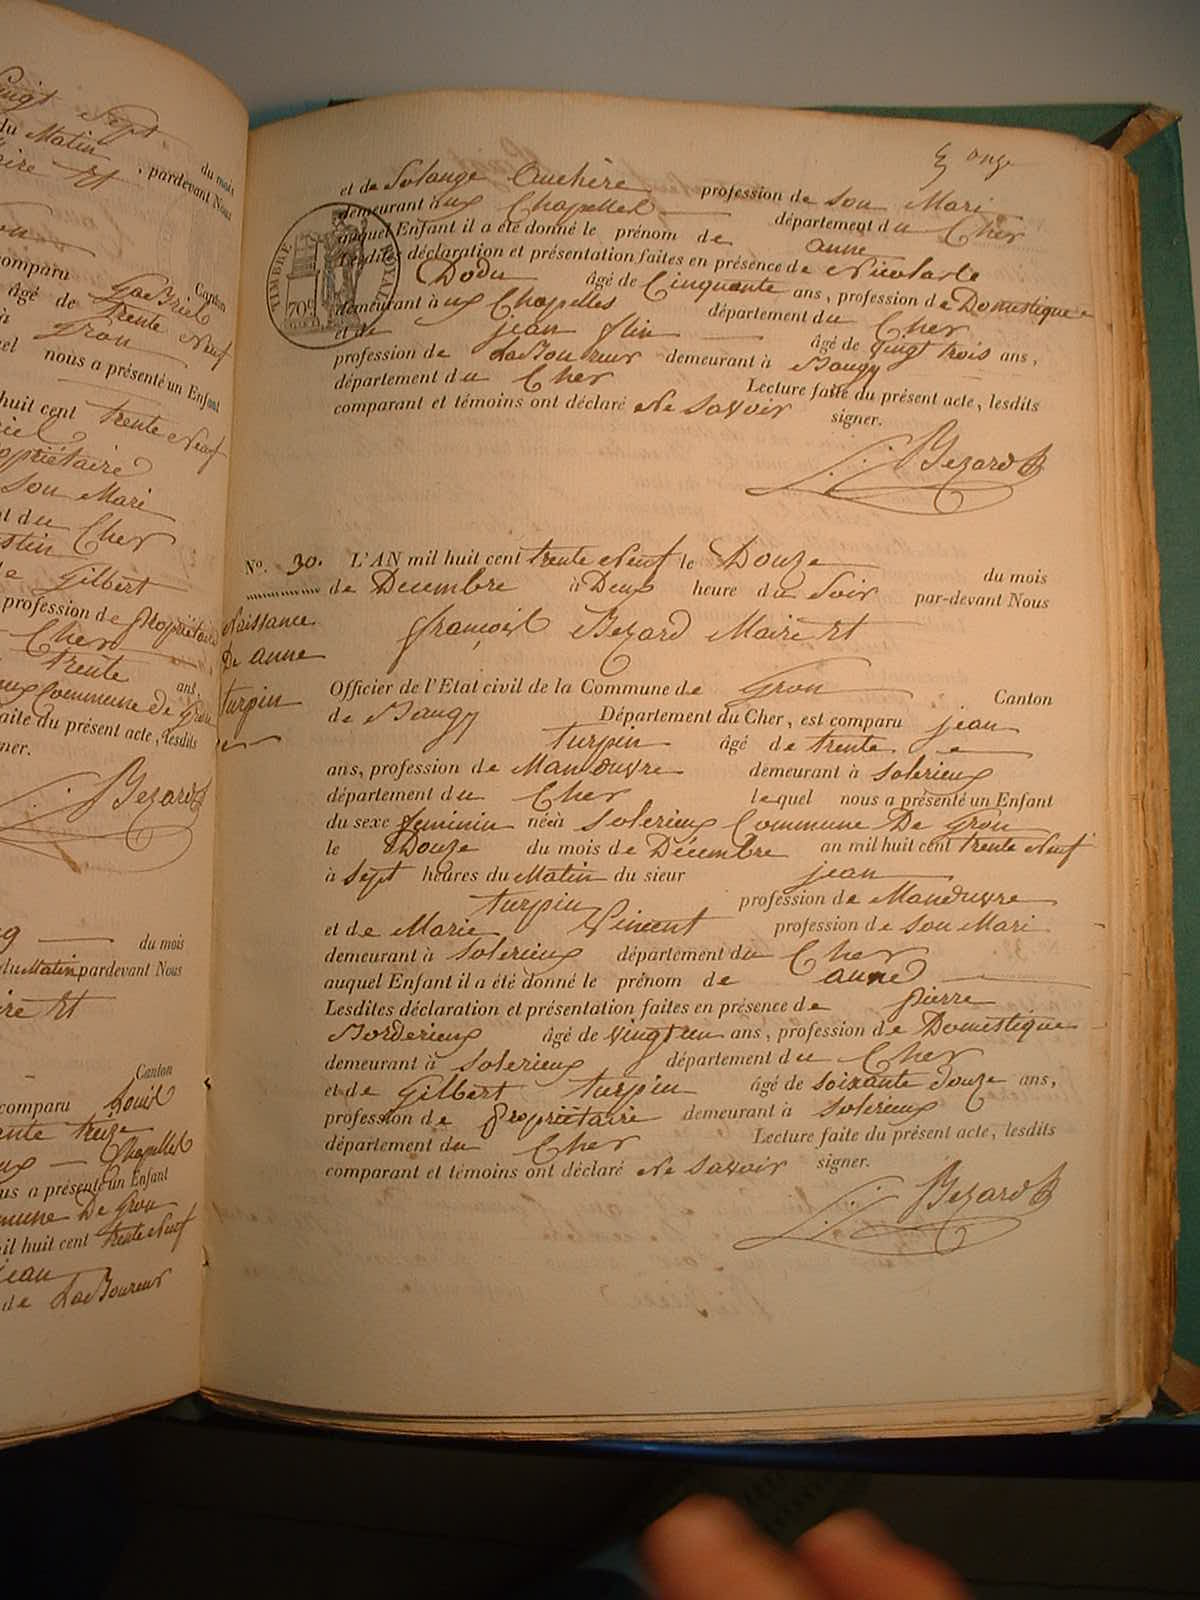 Vingt Sept
du mois
du Matin, pardevant Nous
Maire Et
Canton
comparu Gabriel
âgé de trente Neuf
Gron
nous a présenté un Enfant
huit cent trente Neuf
propriétaire
Son Mari
du Cher
de Gilbert
profession de propriétaire
Cher
trente ans,
Commune De Gron
faite du présent acte, lesdits
signer.
Bezard
du mois
du Matin pardevant Nous
Maire Et
Canton
comparu Louis
treize
aux Chapelles
nous a présenté un Enfant
Commune De Gron
mil huit cent trente Neuf
jean
de LaBoureur
onze
et de Solange Cuchère profession de son Mari
demeurant à ux Chapelles département du Cher
auquel Enfant il a été donné le prénom de anne
Lesdites déclaration et présentation faites en présence de Nicolas
Dodu âgé de Cinquante ans, profession de Domestique
demeurant à ux Chapelles département du Cher
et de jean flin âgé de vingt trois ans,
profession de LaBoureur demeurant à Baugy
département du Cher Lecture faite du présent acte, lesdits
comparant et témoins ont déclaré Ne Savoir signer.
Bezard
TIMBRE ROYAL
70c
No. 30. L'AN mil huit cent trente Neuf le Douze du mois
de Decembre à Deux heure du Soir par-devant Nous
Naissance françois Bezard Maire Et
De anne
turpin
Officier de l'Etat civil de la Commune de Gron Canton
de Baugy Département du Cher, est comparu jean
turpin âgé de trente
ans, profession de Manduvre demeurant à Solerieux
département du Cher lequel nous a présenté un Enfant
du sexe feminin né à Solerieux Commune De Gron
le Douze du mois de Décembre an mil huit cent trente Neuf
à Sept heures du Matin du sieur jean
turpin profession de Manduvre
et de Marie Vincent profession de Son Mari
demeurant à Solerieux département du Cher
auquel Enfant il a été donné le prénom de anne
Lesdites déclaration et présentation faites en présence de pierre
Borderieux âgé de vingt un ans, profession de Domestique
demeurant à Solerieux département du Cher
et de Gilbert turpin âgé de soixante douze ans,
profession de propriétaire demeurant à Solerieux
département du Cher Lecture faite du présent acte, lesdits
comparant et témoins ont déclaré Ne Savoir signer.
Bezard